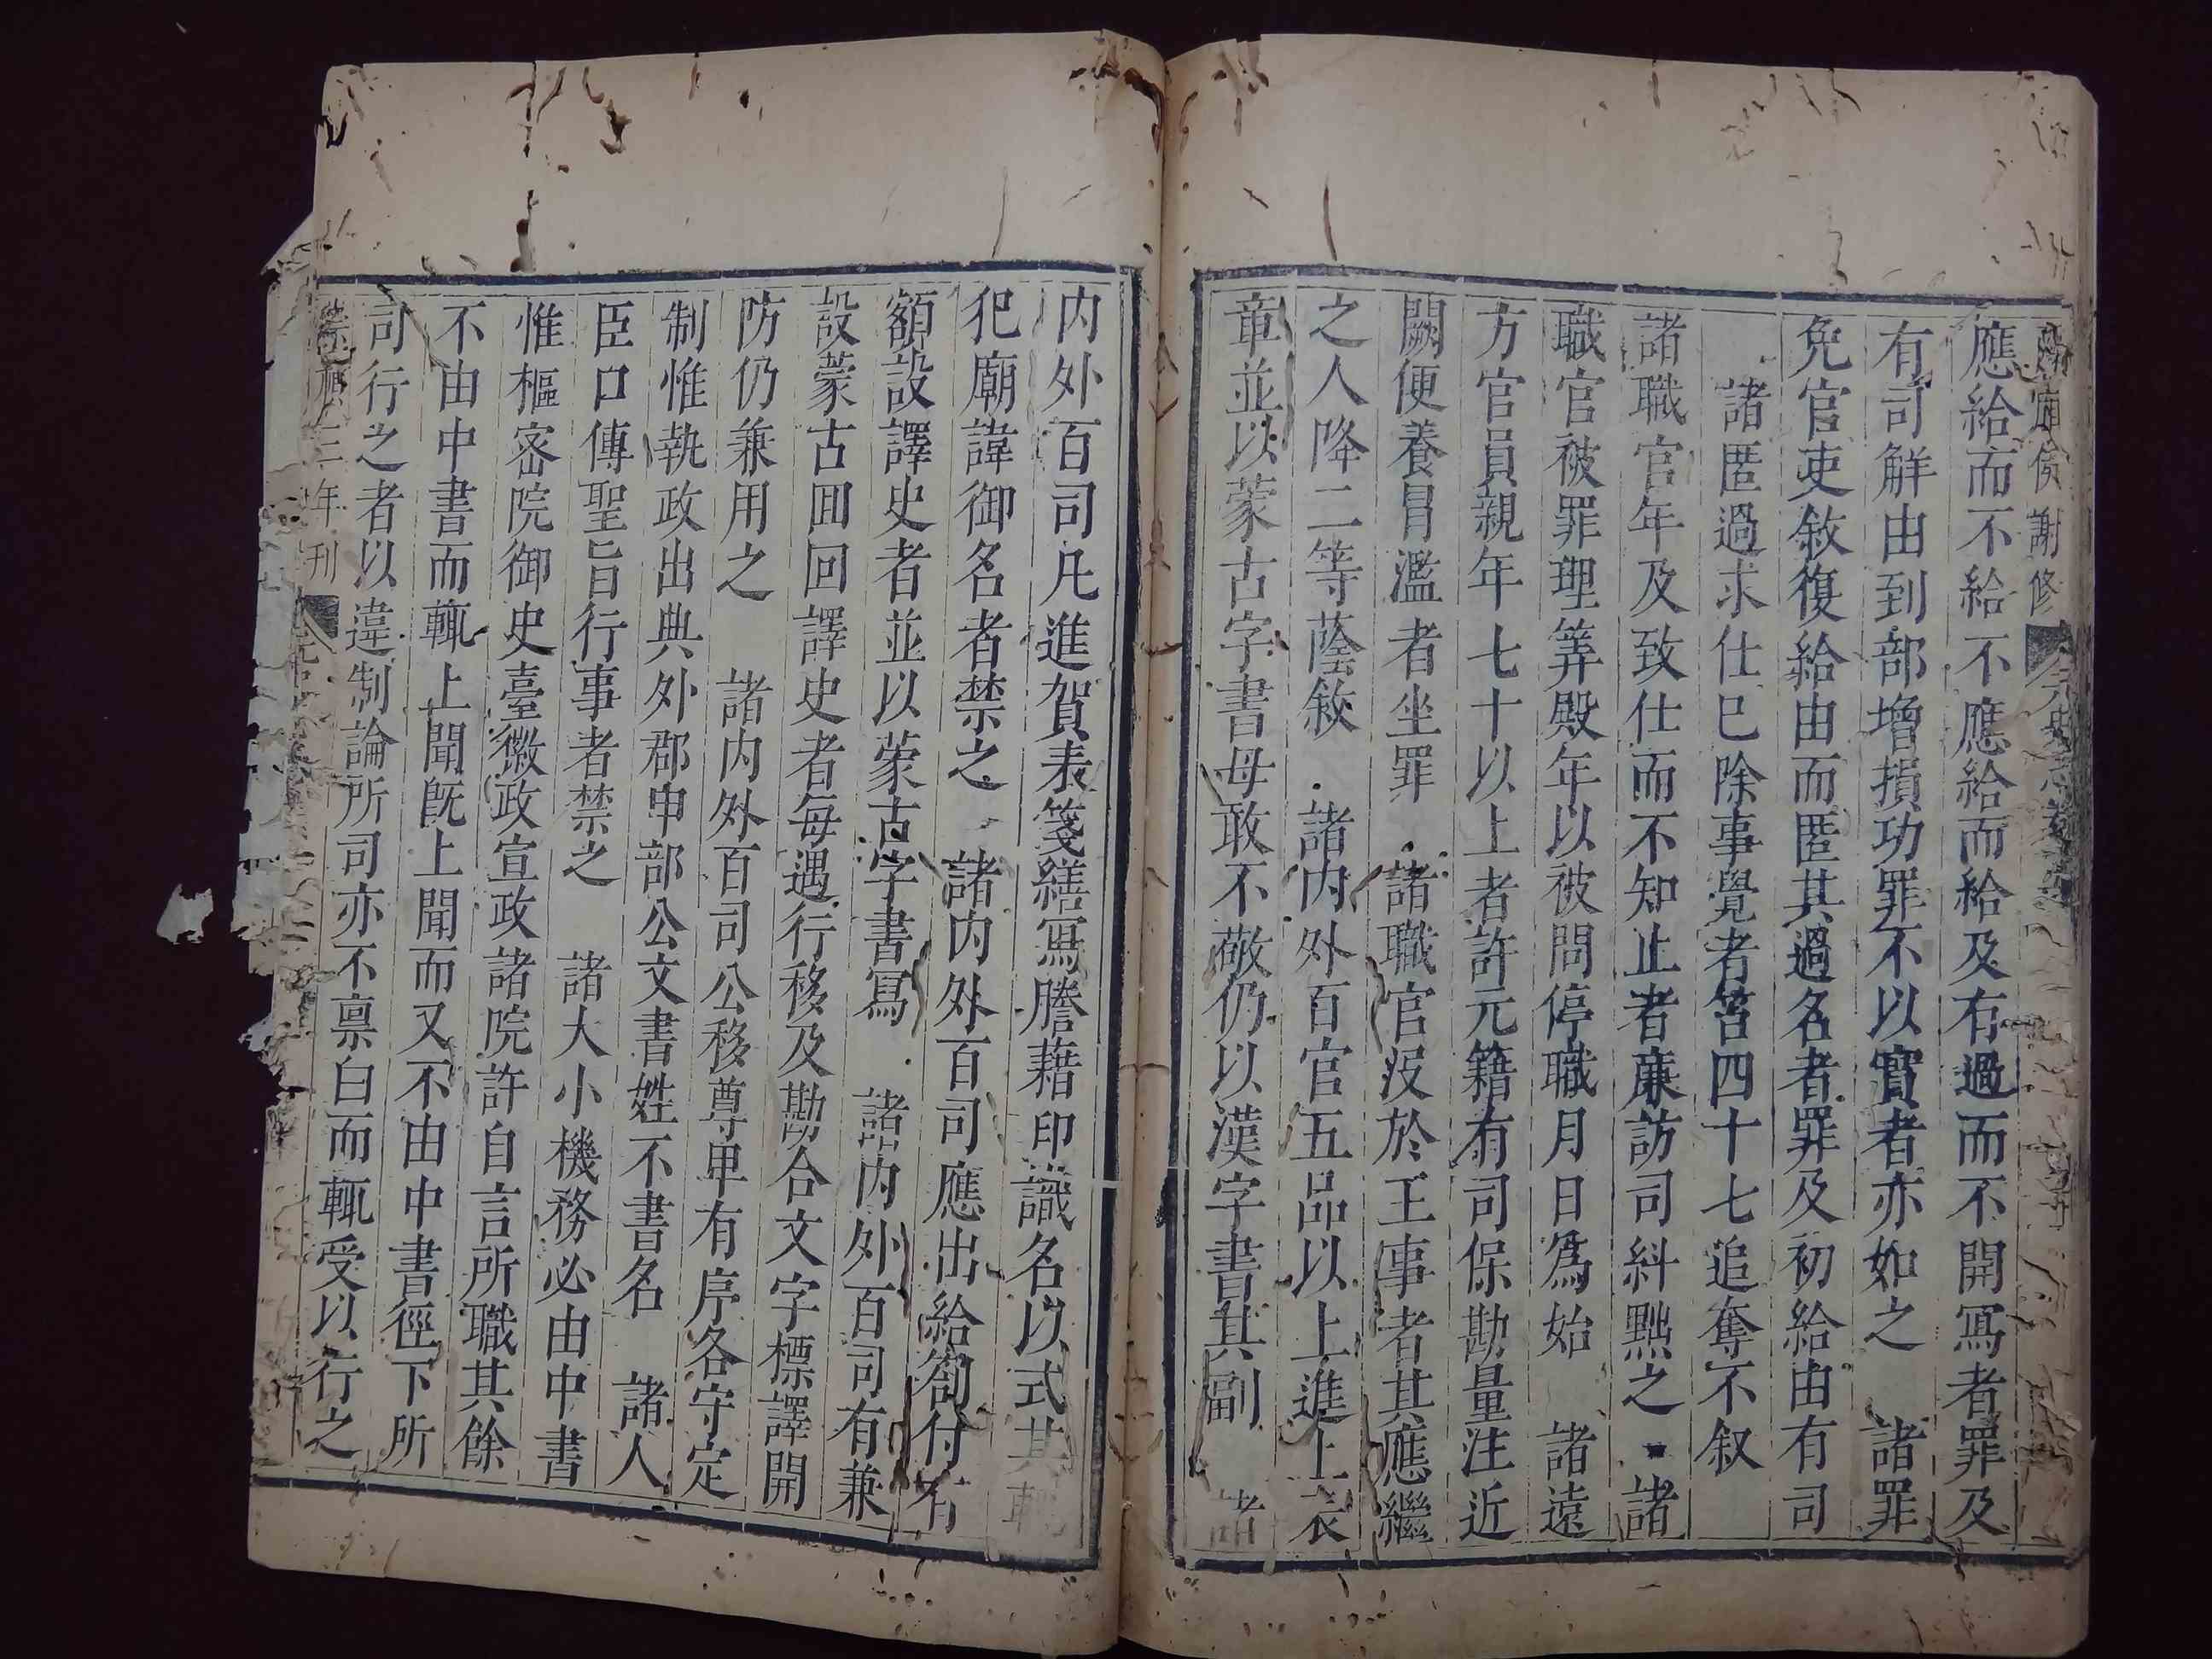 侯謝修
應給而不給不應給而給及有過而不開寫者罪及
有司解由到部增損功罪不以實者亦如之 諸罪
免官吏敘復給由而匿其過名者罪及初給由有司
諸匿過求仕已除事覺者笞四十七追奪不叙
諸職官年及致仕而不知止者廉訪司糾黜之 諸
職官被罪理筭殿年以被問停職月日爲始 諸遠
方官員親年七十以上者許元籍有司保勘量注近
闕便養冒濫者坐罪 諸職官沒於王事者其應繼
之人降二等蔭敘 諸内外百官五品以上進上表
章並以蒙古字書毋敢不敬仍以漢字書其副 諸
内外百司凡進賀表箋繕寫謄藉印識名以式其輒
犯廟諱御名者禁之 諸内外百司應出給劄付有
額設譯史者並以蒙古字書寫 諸内外百司有兼
設蒙古回回譯史者每遇行移及勘合文字標譯開
防仍兼用之 諸内外百司公移尊卑有序各守定
制惟執政出典外郡申部公文書姓不書名 諸人
臣口傳聖旨行事者禁之 諸大小機務必由中書
惟樞密院御史臺徽政宣政諸院許自言所職其餘
不由中書而輒上聞既上聞而又不由中書徑下所
司行之者以違制論所司亦不禀白而輒受以行之
三年刊